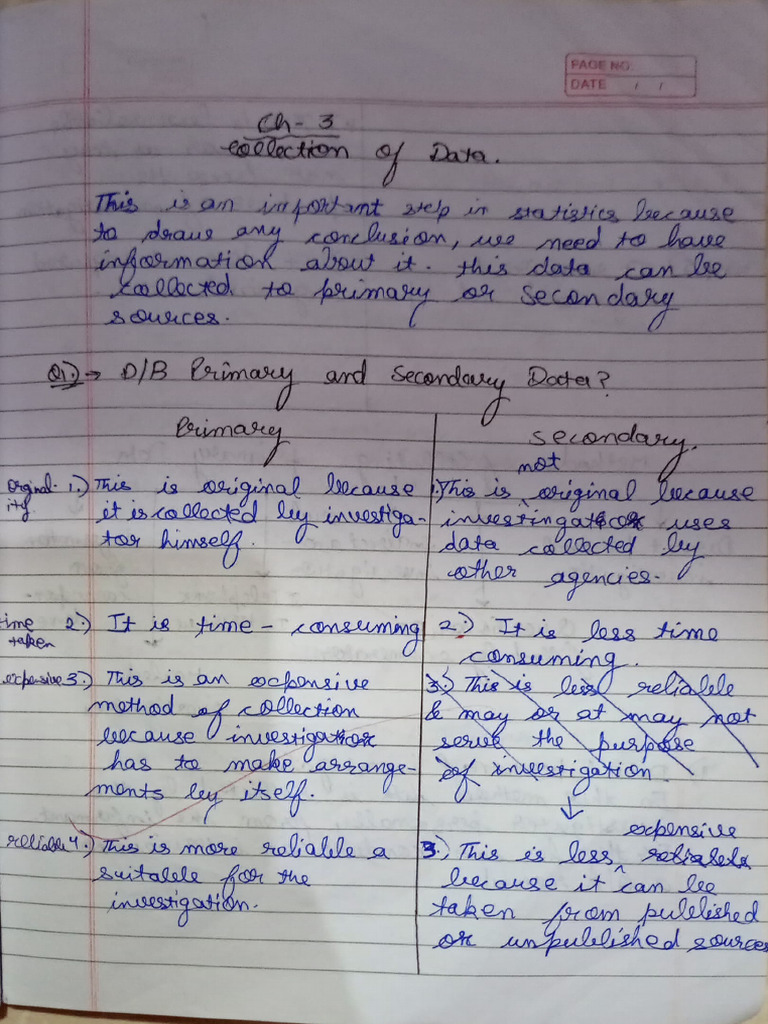 PAGE NO.
DATE / /
Ch - 3
Collection of Data.
This is an important step in statistics because
to draw any conclusion, we need to have
information about it. this data can be
collected to primary or secondary
sources.
Q1.) → D/B Primary and Secondary Data?
Primary
Orginal-ity 1.) This is original because
it is collected by investiga-
tor himself.
time taken 2.) It is time - consuming
expensive 3.) This is an expensive
method of collection
because investigator
has to make arrange-
ments by itself.
reliable 4.) This is more reliable a
suitable for the
investigation.
Secondary.
1.) This is not original because
investingator uses
data collected by
other agencies.
2.) It is less time
consuming.
3.) This is less reliable
& may or at may not
serve the purpose
of investigation
3.) This is less expensive
because it can be
taken from published
or unpublished sources